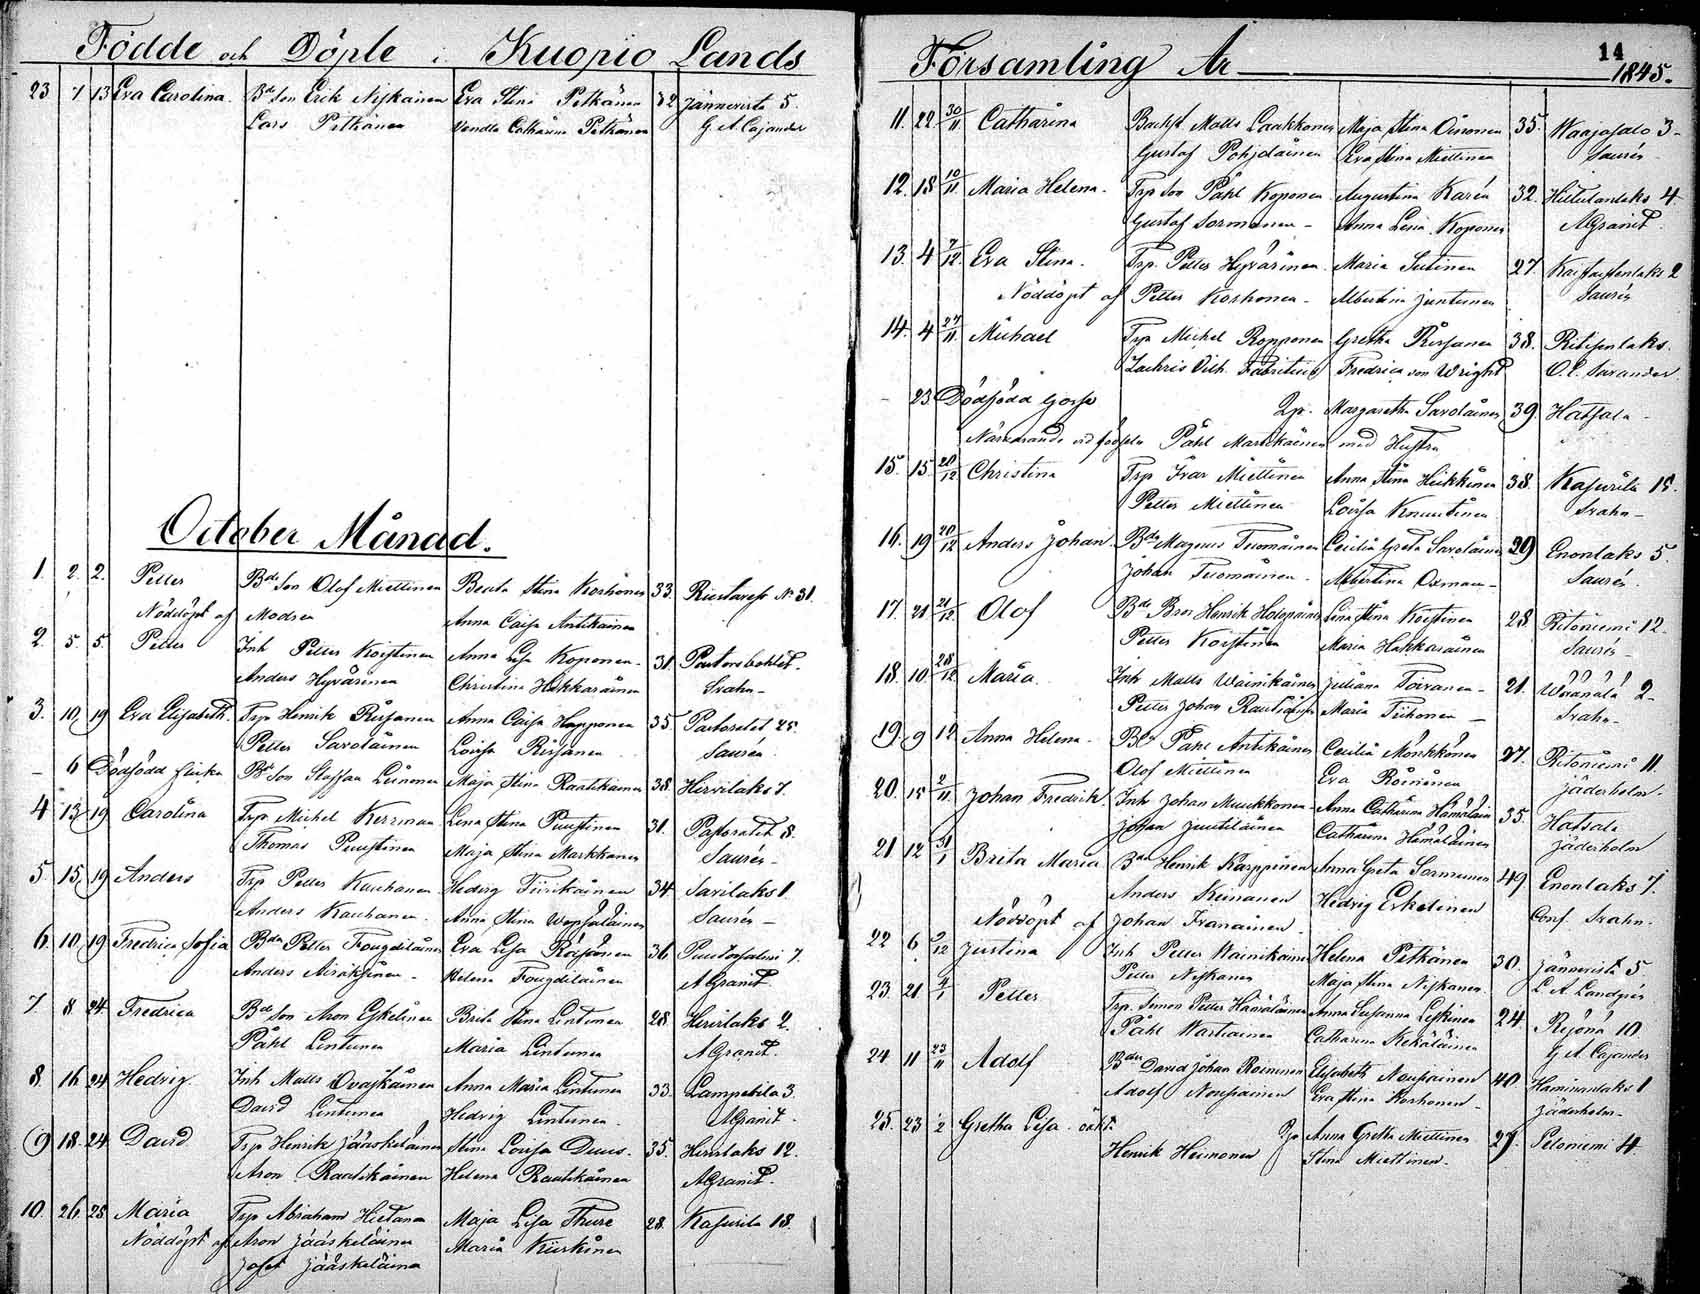 Födde och Döpte i Kuopio Lands
23 7 13 Eva Carolina. Bde Son Erik Niskainen Eva Stina Pitkänen 32 Jännevirta 5.
Lars Pitkänen Catharina Pitkänen G. A. Cajander
October Månad.
1. 2. 2. Petter Bde Son Olof Miettinen Beata Stina Korhonen 33. Riistavesi No 31.
Nöddöpt af Modren Anna Caisa Antikainen
2 5. 5. Petter Inh Petter Koistinen Anna Lisa Koponen 31. Pastorsbohlet.
Anders Hyvärinen Christina Hakkarainen Svahn
3. 10. 19 Eva Elisabeth. Trp Henrik Riisanen Anna Caisa Happonen 35 Pastoratet 25.
Petter Savolainen Lovisa Riisanen Saurén
– 6 Dödfödd flicka Bde Son Staffan Leinonen Maja Stina Rautikainen 38. Hirvilaks 7.
4 13 19 Carolina Trp Michel Kerrman Lena Stina Puustinen 31. Pastoratet 8.
Thomas Puustinen Maja Stina Markkanen Saurén
5. 15. 19 Anders Trp Petter Kauhanen Hedvig Tiirikainen 34 Savilaks 1.
Anders Kauhanen. Anna Stina Wepsäläinen Saurén
6. 10. 19 Fredrica Sofia Bdn Petter Tougdilainen Eva Lisa Räisänen 36 Puutosalmi 7.
Anders Airaksinen Helena Tougdilainen A Granit.
7 8 24. Fredrica Bde Son Aron Eskelinen Brita Stina Lintunen 28 Hirvilaks 2.
Påhl Lintunen Maria Lintunen A Granit.
8. 16 24 Hedvig. Inh Matts Ovaskainen Anna Maria Lintunen 33. Lampebila 3.
David Lintunen Hedvig Lintunen. A Granit.
9 18. 24. David Trp Henrik Jääskeläinen Stina Lovisa Duus. 35. Hirvilaks 12.
Aron Rautikainen Helena Rautikainen A Granit.
10. 26. 28. Maria Trp Abraham Hietanen Maja Lisa Thure 28. Kasurila 18.
Nöddöpt af Aron Jääskeläinen Maria Kiiskinen
Josef Jääskeläinen
Församling År 1845.
14
11. 22. 30/11 Catharina Matts Laakkonen Maja Stina Oinonen 35. Waajasalo 3
Gustaf Pohjolainen Eva Stina Miettinen Saurén
12. 18 10/11 Maria Helena. Trp Son Påhl Koponen Augustina Karén 32. Hiltulanlaks 4
Gustaf Sormunen Anna Lena Koponen A Granit.
13. 4 7/12 Eva Stina. Trp. Petter Hyvärinen Maria Sutinen 27 2
Nöddöpt af Petter Korhonen Albertina Juntunen Saurén
14. 4 27/11 Michael Trp Michel Ropponen Gretha Riisanen 38. Ritisenlaks.
Zachris Vilh. Fabritius Fredrica von Wright O. E. Savander
– 23 Dödfödd gosse Qp. Margaretha Savolainen 39. Hatsala
Närvarande vid födseln Påhl Martikainen med Hustru
15. 15 20/12 Christina Trp Ivar Miettinen Anna Stina Heikkinen 38. Kasurila 15.
Petter Miettinen Lovisa Knuutinen Svahn
16. 19 20/12 Anders Johan Bde Magnus Tuomainen Cecilia Greta Savolainen 39 Enonlaks 5.
Johan Tuomainen Albertina Oxman Saurén
17. 21 21/12 Olof Bde Bror Henrik Holopainen Lena Stina Koistinen 28 Ritoniemi 12.
Petter Koistinen Maria Hakkarainen Saurén
18. 10 28/12 Maria. Inh Matts Wainikainen Juliana Toivanen 21. Wäänälä 2
Petter Johan Rautiainen Maria Tiihonen Svahn
19. 9 12 Anna Helena. Bde Påhl Antikainen Cecilia Mönkkönen 27. Ritoniemi 11.
Olof Miettinen Eva Roininen Jäderholm
20. 15 2/11 Johan Fredrik. Inh Johan Muukkonen Anna Catharina Hämäläin 35. Hatsala
Johan Juutilainen Catharina Hämäläinen Jäderholm
21 12 31/1 Brita Maria Bde Henrik Karppinen Anna Greta Sormunen 49. Enonlaks 7.
Anders Reinanen Hedvig Eskelinen Conf. Svahn
Nöddöpt af Johan Iivanainen
22 6. 9/12 Justina Inh Petter Wainikainen Helena Pitkänen 30. Jännevirta 5
Petter Niskanen Maja Stina Niskanen L. A. Landgrén
23. 21 4/1 Petter Trp. Simon Petter Hämäläinen Anna Susanna Leskinen 24. Rijönä 10
Påhl Wartiainen Catharina Kekäläinen G. A. Cajander
24 11 23/11 Adolf Bdn David Johan Roininen Elisabeth Nousiainen 40. Haminanlaks 1
Adolf Nousiainen Eva Stina Korhonen Jäderholm
25. 23 1/2 Gretha Lisa oäkt. Qp Anna Gretha Miettinen 27. Petoniemi 4.
Henrik Heimonen Stina Miettinen.